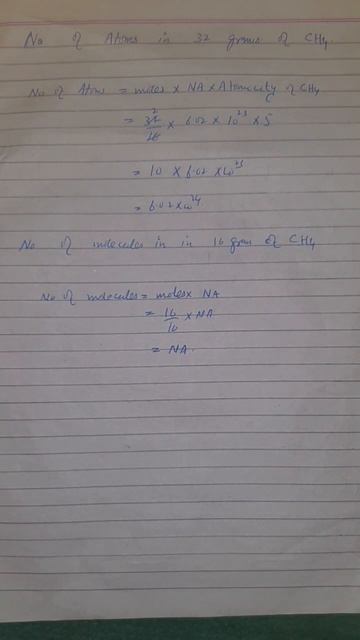 No of Atoms in 32 grams of CH4
No of Atoms = moles x NA x Atomicity of CH4
= 32/16 2 x 6.02 x 10^23 x 5
= 10 x 6.02 x 10^23
= 6.02 x 10^24
No of molecules in in 16 gram of CH4
No of molecules = moles x NA
= 16/16 x NA
= NA.